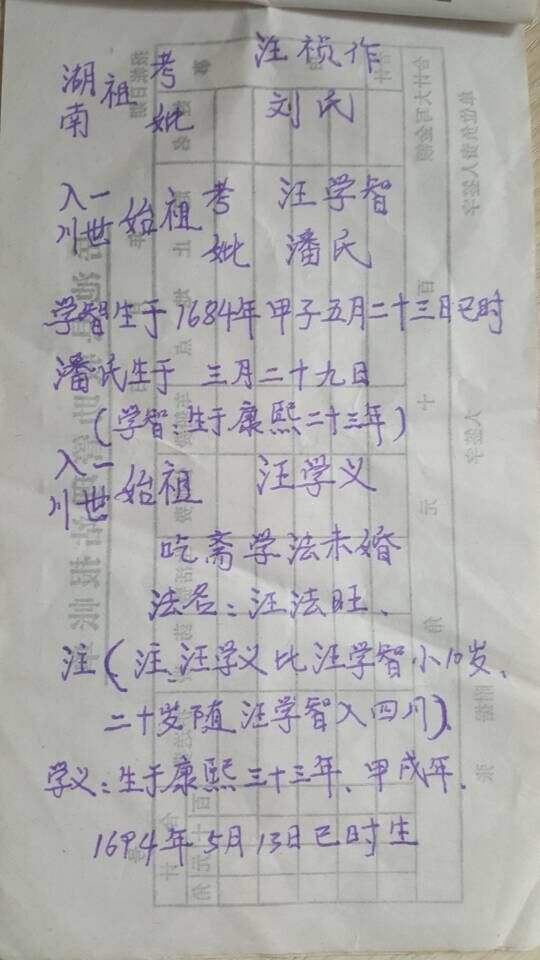 湖南 祖 考 汪祯作
妣 刘民
入川 一世 始祖 考 汪学智
妣 潘民
学智生于1684年甲子五月二十三日巳时
潘民生于 三月二十九日
(学智:生于康熙二十三年)
入川 一世 始祖 汪学义
吃斋学法未婚
法名:汪法旺、
注(注、汪学义比汪学智小10岁、
二十岁随汪学智入四川)、
学义:生于康熙三十三年、甲戍年、
1694年5月13日巳时生